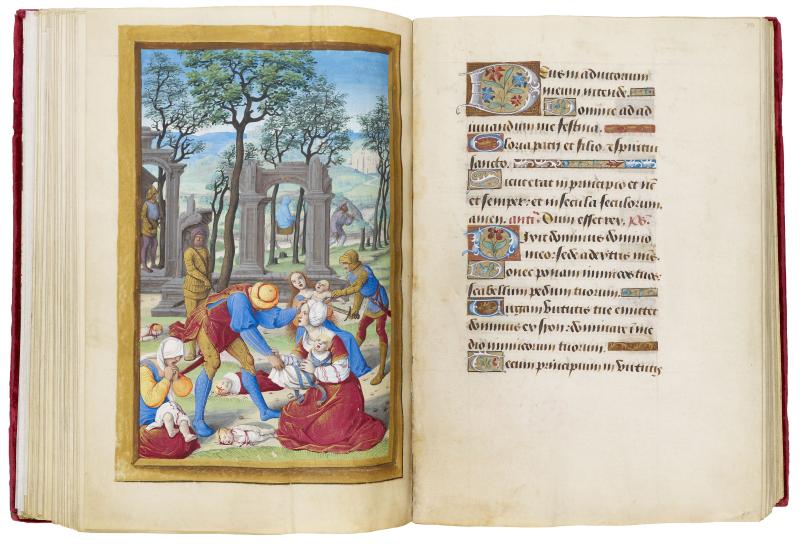 Deus in adiutorium
meum intende.
Domine ad ad
iuuandum me festina.
Gloria patri et filio et spiritui
sancto.
Sicut erat in principio et nc
et semper: et in secula seculorum.
amen. Dum esset rex. ps.
Dixit dominus domino
meo: sede a dextris meis
Donec ponam inimicos tuos:
scabellum pedum tuorum.
Uirgam uirtutis tue emittet
dominus ex syon: dominare in me
dio inimicorum tuorum.
Tecum principium in uirtutis